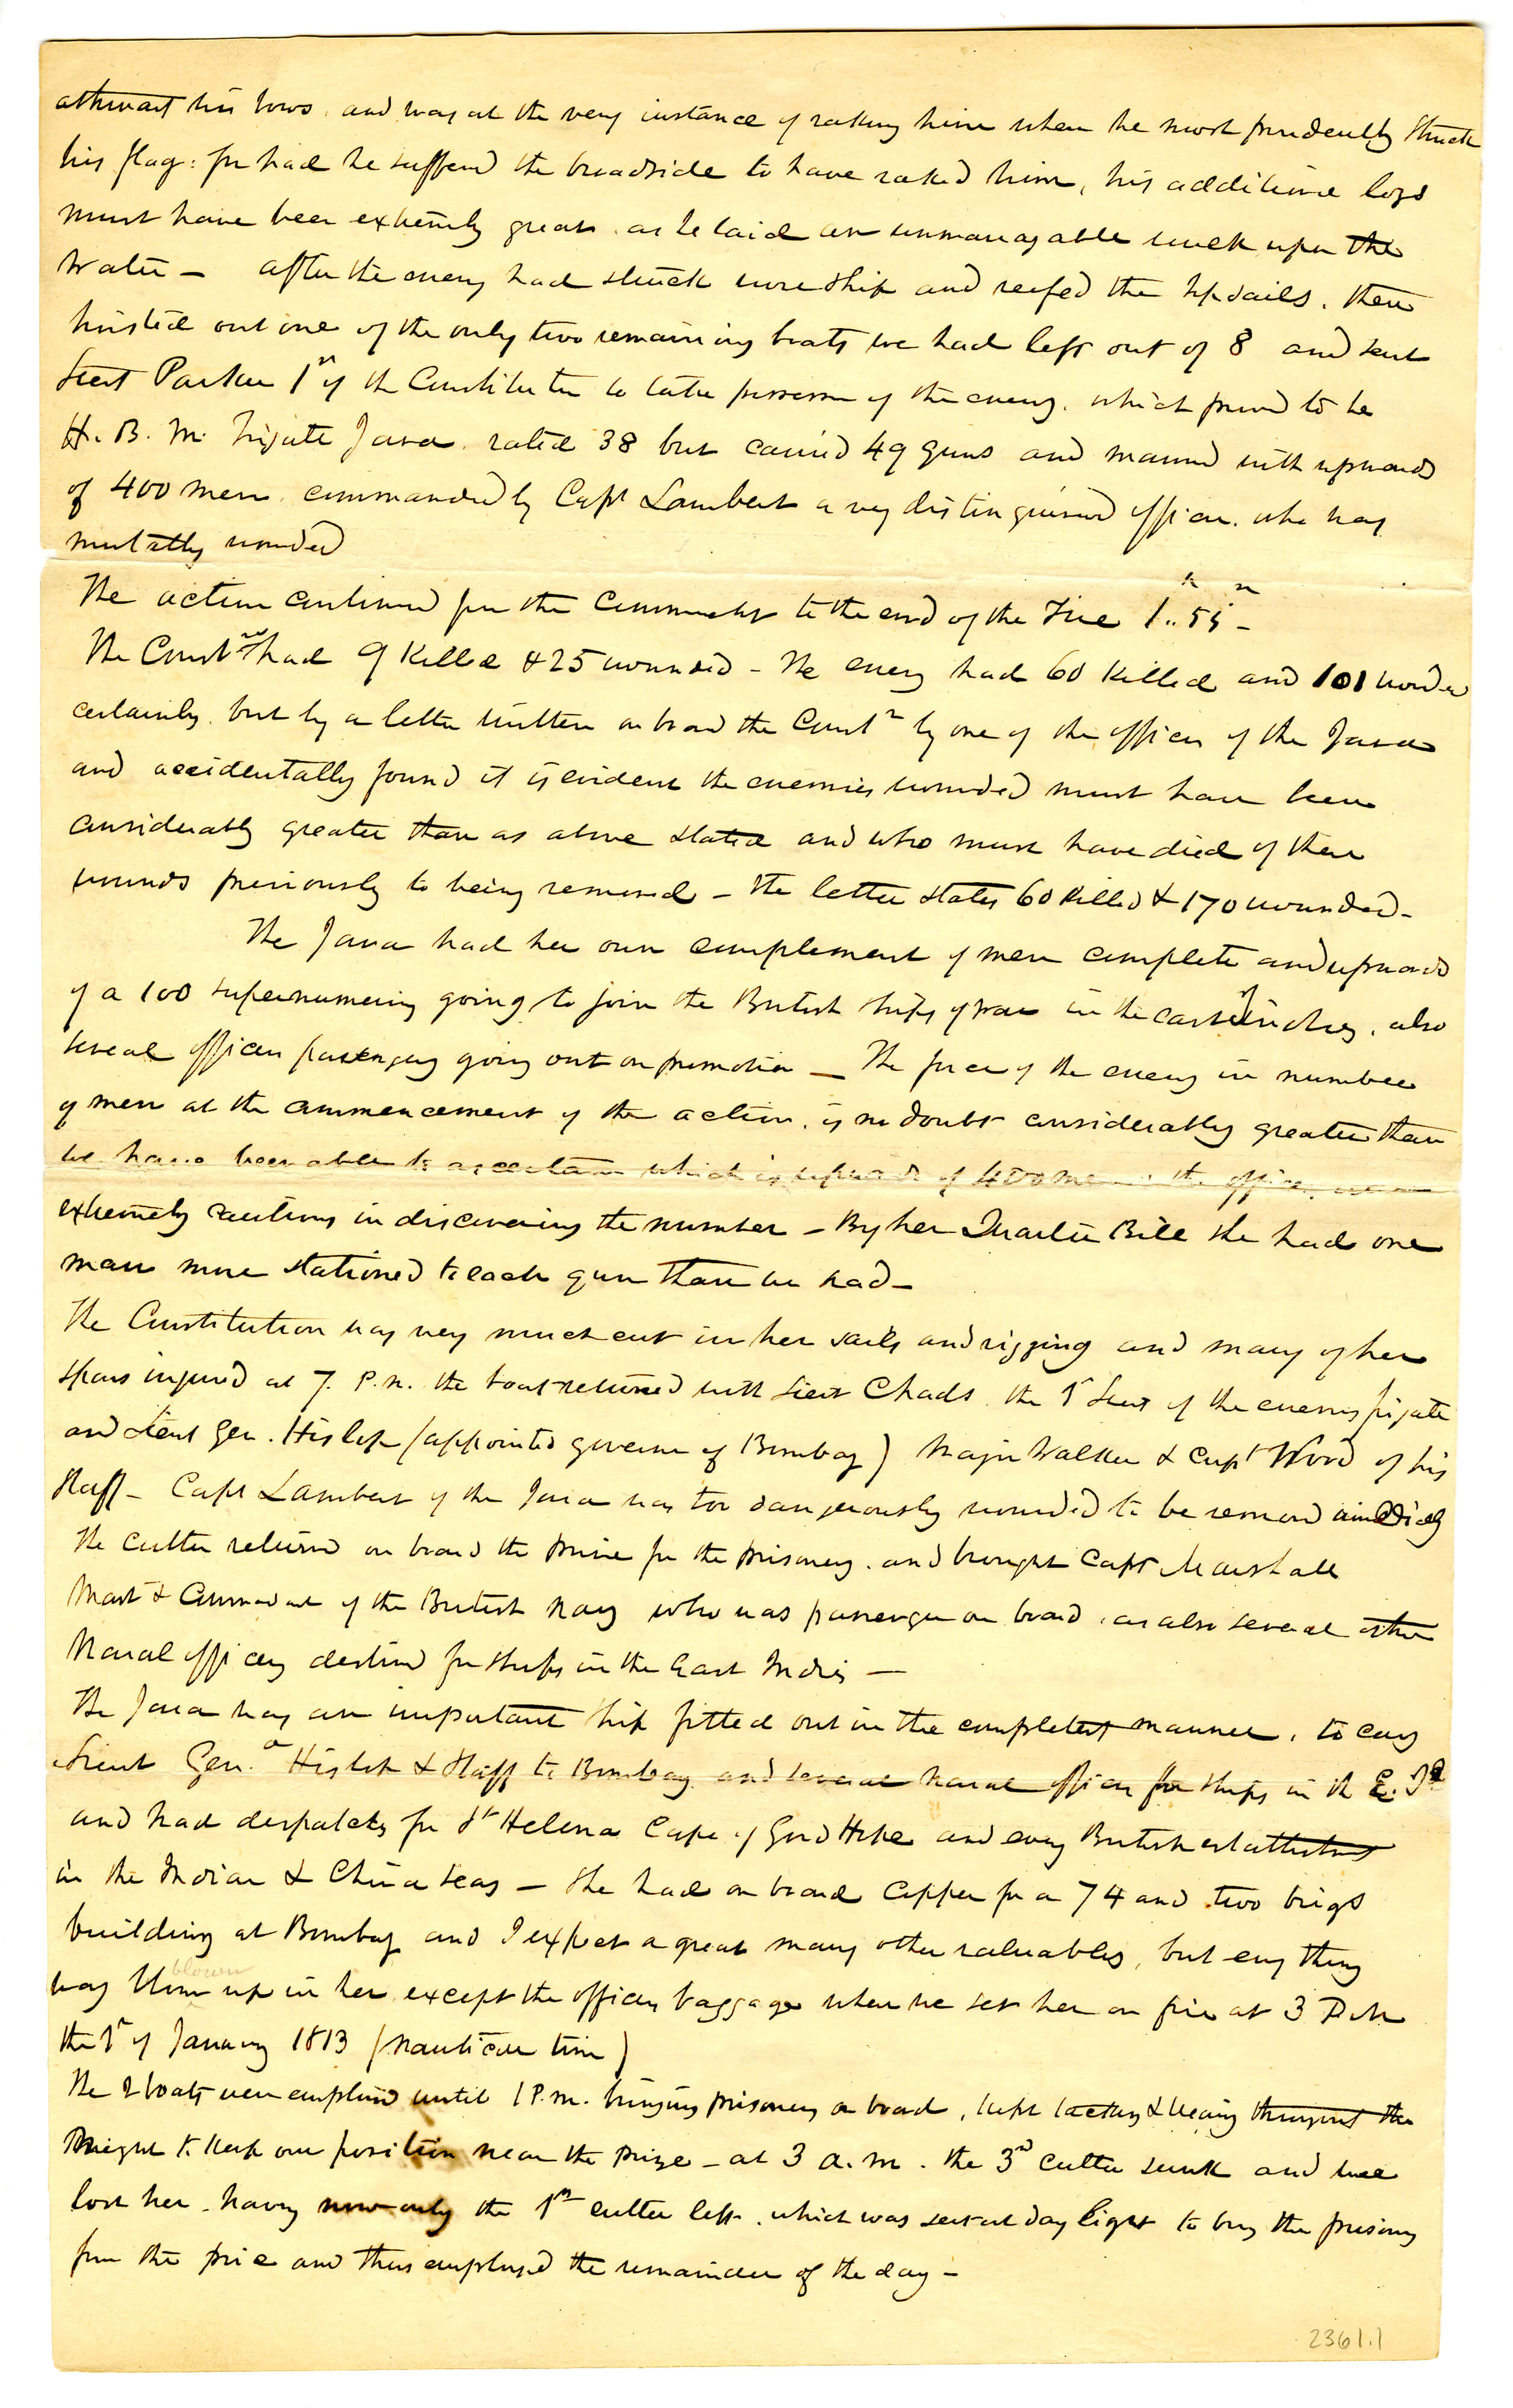 athwart his bows, and was at the very instance of raking him when he most prudently struck
his flag: for had he suffered the broadside to have raked him, his additional loss
must have been extremely great as he laid an unmanagable wreck upon the
Water — after the enemy had struck wore Ship and reefed the topsails. then
hoisted out one of the only two remaining boats we had left out of 8 and sent
Lieut Parker 1st of the Constitution to take possession of the enemy. which proved to be
H. B. M. Frigate Java rated 38 but carried 49 Guns and manned with upwards
of 400 men commanded by Capt Lambert a very distinguised officer. who was
mortally wounded
The action continued from the commencmt to the end of the Fire 1h..55m –
The Constn had 9 Killed & 25 wounded – The enemy had 60 Killed and 101 wounded
certainly. but by a letter written on board the Constn by one of the officers of the Java
and accidentally found it is evident the enemies wounded must have been
considerably greater than as above stated and who must have died of their
wounds previously to being removed – the letter states 60 killed & 170 wounded –
The Java had her own complement of men complete and upwards
of a 100 supernumeriy going to join the British ships of war in the east indies, also
several officers passengers going out on promotion — The force of the enemy in number
of men at the commencement of the action, is no doubt considerably greater than
we have been able to ascertain which is upwards of 400 men the officers were
extremely cautious in discovering the number – By her Quarter Bill she had one
man more stationed to each gun than we had –
The Constitution was very much cut in her sails and rigging and many of her
Spars injured at 7. P.M. the boat returned with Lieut Chads the 1st Lieut of the enemys frigate
and Lieut Gen. Hislop (appointed governor of Bombay) Major Walker & Capt Wood of his
Staff – Capt Lambert of the Java was too dangerously wounded to be removed immediately
The Cutter returned on board the Prize for the prisoners. and brought Capt Marshall
Mast & Commandant of the British Navy who was passenger on board. as also several other
Naval officers destined for Ships in the East Indies —
The Java was an important Ship fitted out in the completest manner, to carry
Lieut Genl Hislop & Staff to Bombay and several naval officers for Ships in the E. Is
and had despatches for St Helena Cape of Good Hope and every British establishment
in the Indian & China Seas – She had on board Copper for a 74 and two brigs
building at Bombay and I expect a great many other valuables, but every thing
was blown up in her except the officers baggage when we set her on fire at 3 P.M
blown
the 1st of January 1813 (Nautical time)
The 2 boats were employed until 1 P.M. bringing prisoners on board, kept tacking & wearing througout the
Night to keep our position near the prize – at 3 A.M. the 3rd Cutter sunk and wee
lost her having now only the 1st cutter left. which was sent at day light to bring the prisoners
from the prize and thus employed the remainder of the day –
2361.1